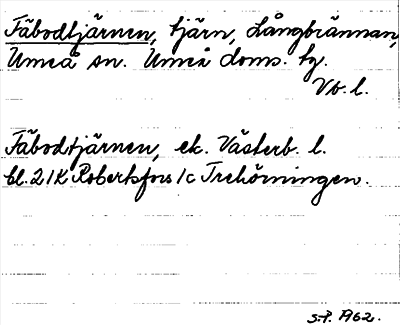 Fäbodtjärnen, tjärn, Långbrännan,
Umeå sn. Umeå doms. hg.
Vb. l.
Fäbodtjärnen, ek. Västerb. l.
bl. 21K Robertsfors 1c Trehörningen.
S.P. 1962.